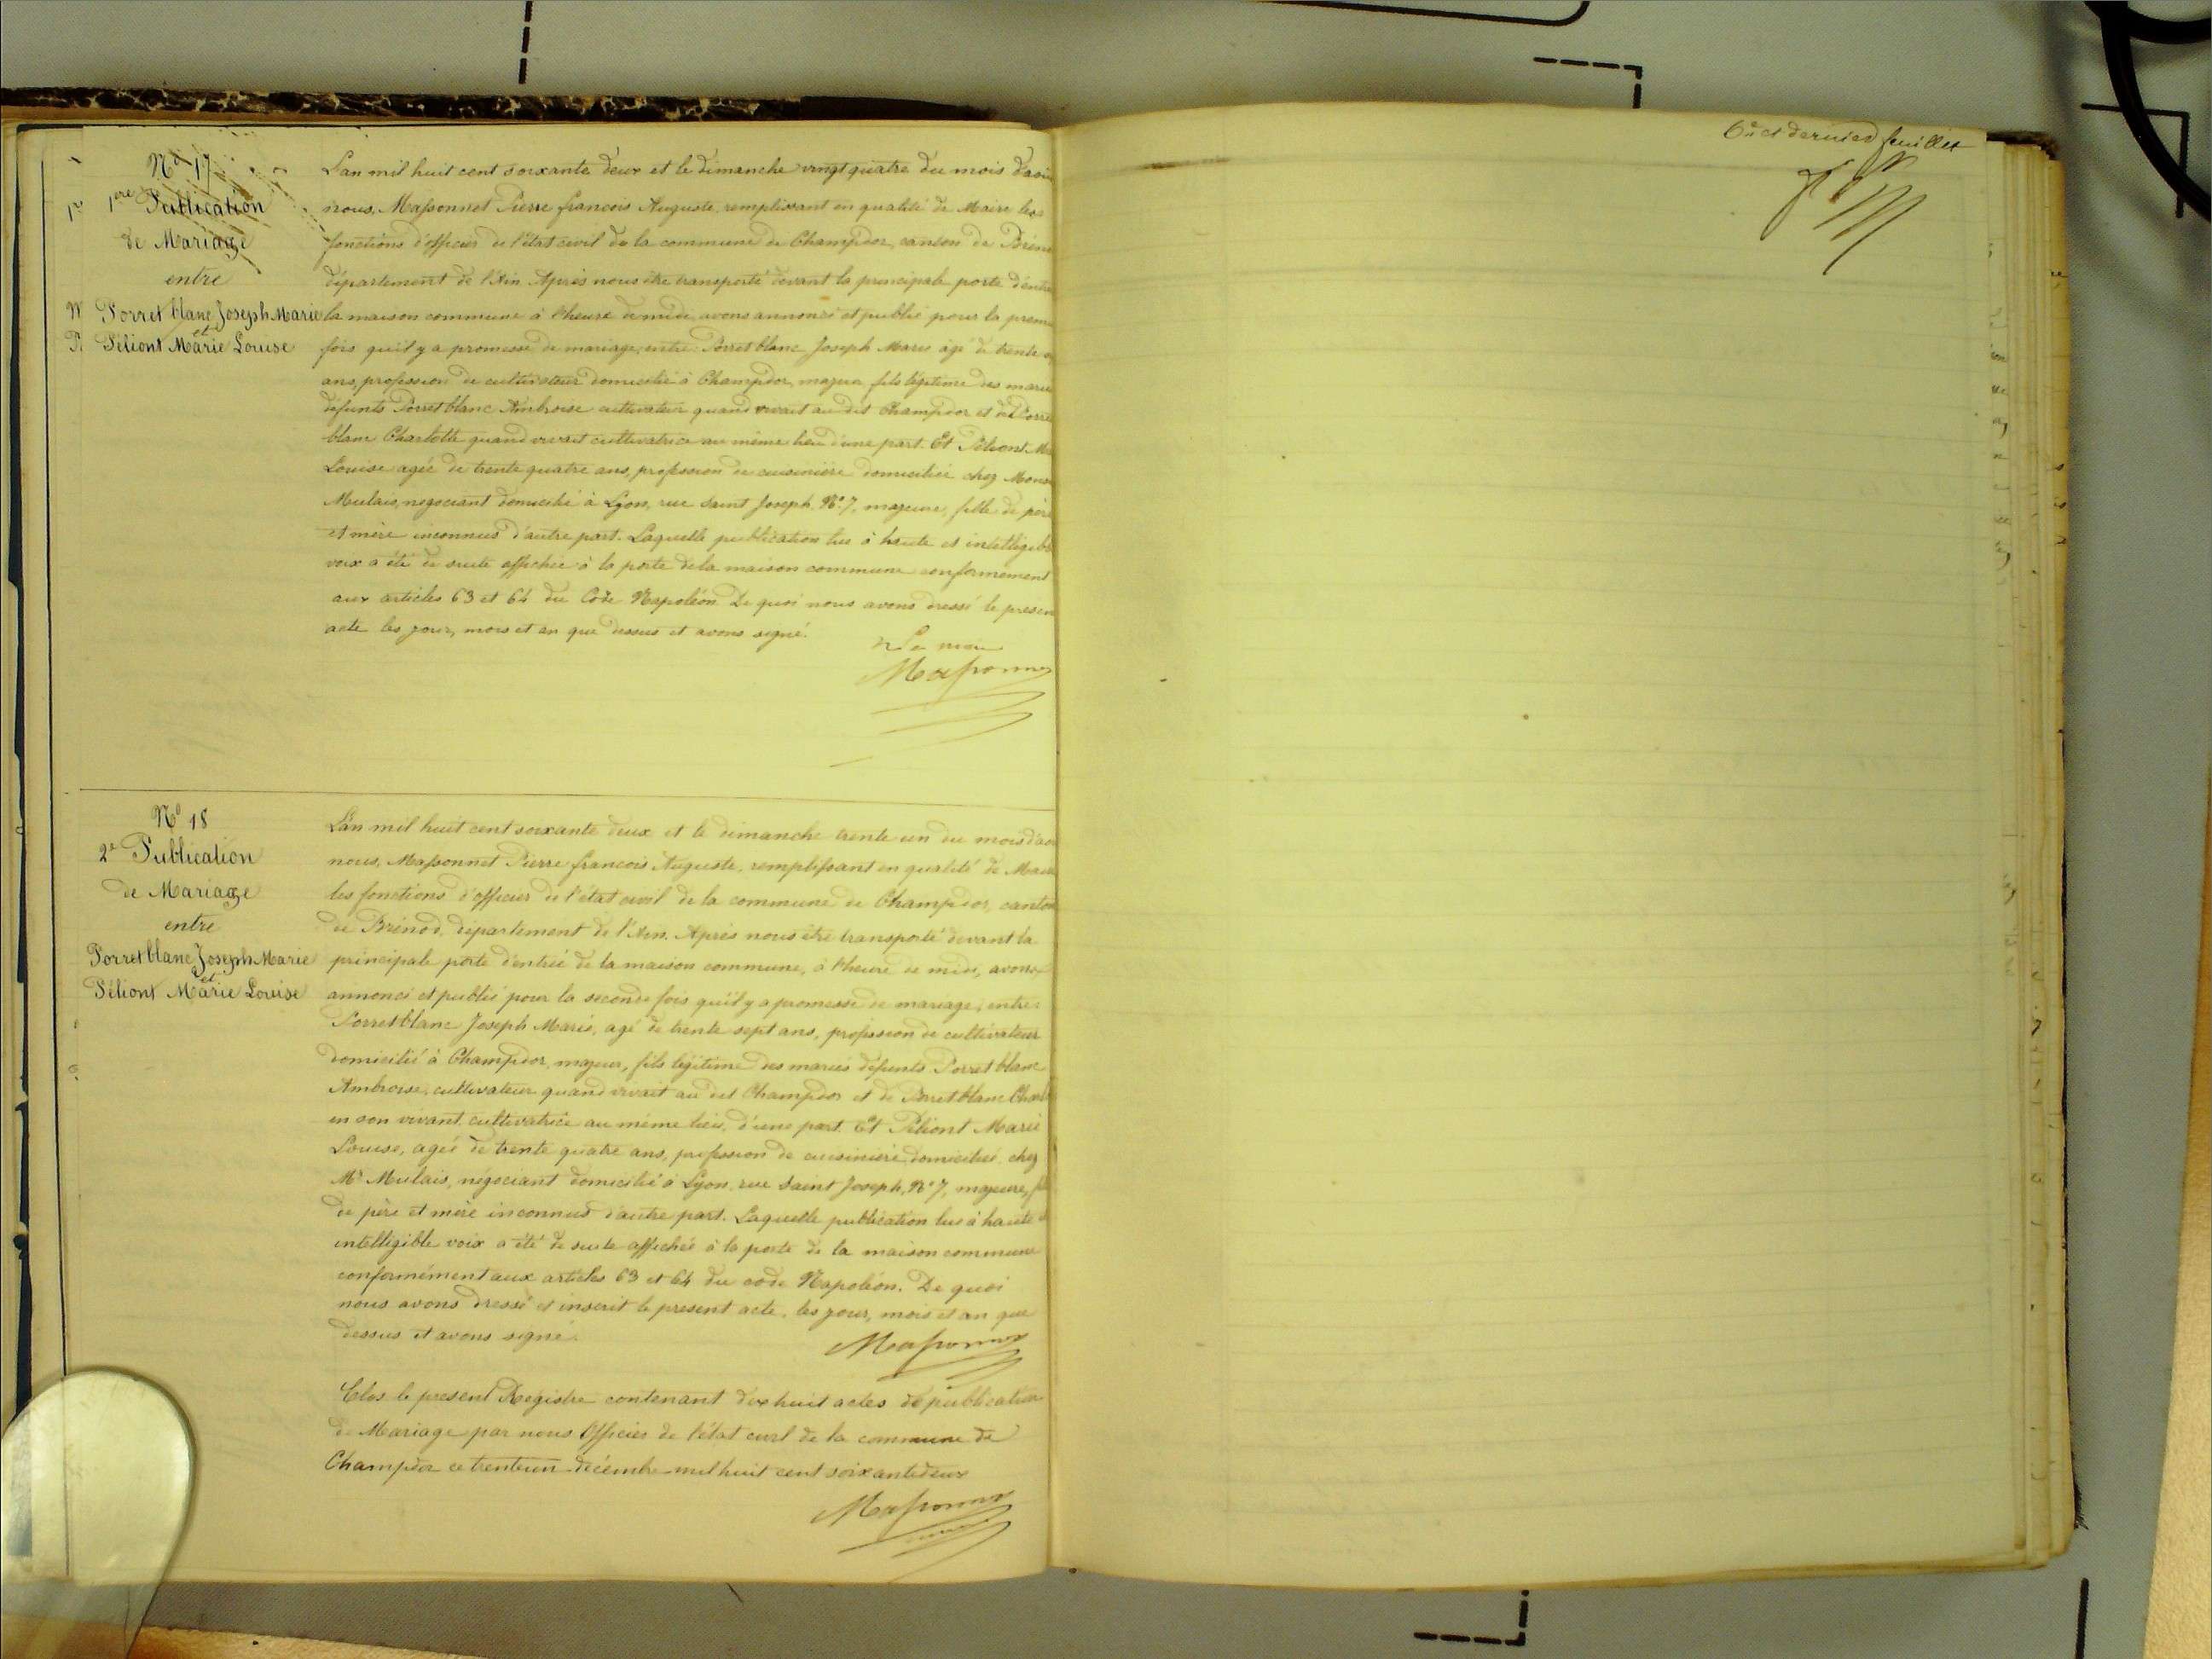 Nº 17
1ère Publication
de Mariage
entre
Porret blanc Joseph Marie
et
Péliont Marie Louise
L'an mil huit cent soixante deux et le dimanche vingt quatre du mois d'aoû
nous, Massonnet Pierre françois Auguste, remplissant en qualité de Maire les
fonctions d'officier de l'état civil de la commune de Champdor, canton de Bréno
département de l'Ain. Après nous être transporté devant la principale porte d'entré
la maison commune à l'heure de midi, avons annoncé et publié pour la premi
fois qu'il y a promesse de mariage, entre Porret blanc Joseph Marie âgé de trente
ans, profession de cultivateur domicilié à Champdor, majeur, fils légitime des mariés
défunts Porret blanc Ambroise cultivateur quand vivait au dit Champdor et de Porre
blanc Charlotte quand vivait cultivatrice au même lieu d'une part. Et Péliont Ma
Louise agée de trente quatre ans, profession de cuisinière domiciliée chez Monsi
Mulais, negociant domicilié à Lyon, rue Saint Joseph, Nº 7, majeure, fille de père
et mère inconnus d'autre part. Laquelle publication lue à haute et intelligible
voix a été de suite affichée à la porte de la maison commune conformément
aux articles 63 et 64 du Code Napoléon. De quoi nous avons dressé le présen
acte les jour, mois et an que dessus et avons signé.
Le mair
Massonnet
Nº 18
2e Publication
de Mariage
entre
Porret blanc Joseph Marie
et
Péliont Marie Louise
L'an mil huit cent soixante deux et le dimanche trente un du mois d'aoû
nous, Massonnet Pierre françois Auguste, remplissant en qualité de Maire
les fonctions d'officier de l'état civil de la commune de Champdor, canton
de Brénod, département de l'Ain. Après nous être transporté devant la
principale porte d'entrée de la maison commune, à l'heure de midi, avons
annoncé et publié pour la seconde fois qu'il y a promesse de mariage, entre
Porret blanc Joseph Marie, agé de trente sept ans, profession de cultivateur
domicilié à Champdor, majeur, fils légitime des mariés défunts Porret blanc
Ambroise, cultivateur quand vivait au dit Champdor et de Porret blanc Charl
en son vivant cultivatrice au même lieu, d'une part. Et Péliont Marie
Louise, agée de trente quatre ans, profession de cuisinière, domiciliée chez
Mr Mulais, négociant domicilié à Lyon, rue Saint Joseph, Nº 7, majeure, fil
de père et mère inconnus d'autre part. Laquelle publication lue à haute et
intelligible voix a été de suite affichée à la porte de la maison commune
conformément aux articles 63 et 64 du code Napoléon. De quoi
nous avons dressé et inscrit le present acte, les jour, mois et an que
dessus et avons signé.
Massonnet
Clos le present Registre contenant dix huit actes de publication
de Mariage par nous Officier de l'état civil de la commune de
Champdor ce trente un décembre mil huit cent soixante deux
Massonnet
6e et dernier feuillet